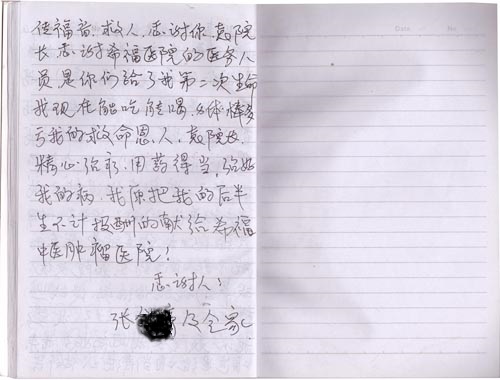 Date No
传福音、救人、感谢你、袁院
长、感谢希福医院的医务人
员,是你们给了我第二次生命
我现在能吃能喝、身体棒、多
亏我的救命恩人、袁院长,
精心治疗、用药得当,治好
我的病、我愿把我的后半
生不计报酬的献给希福
中医肿瘤医院!
感谢人:
张 及全家